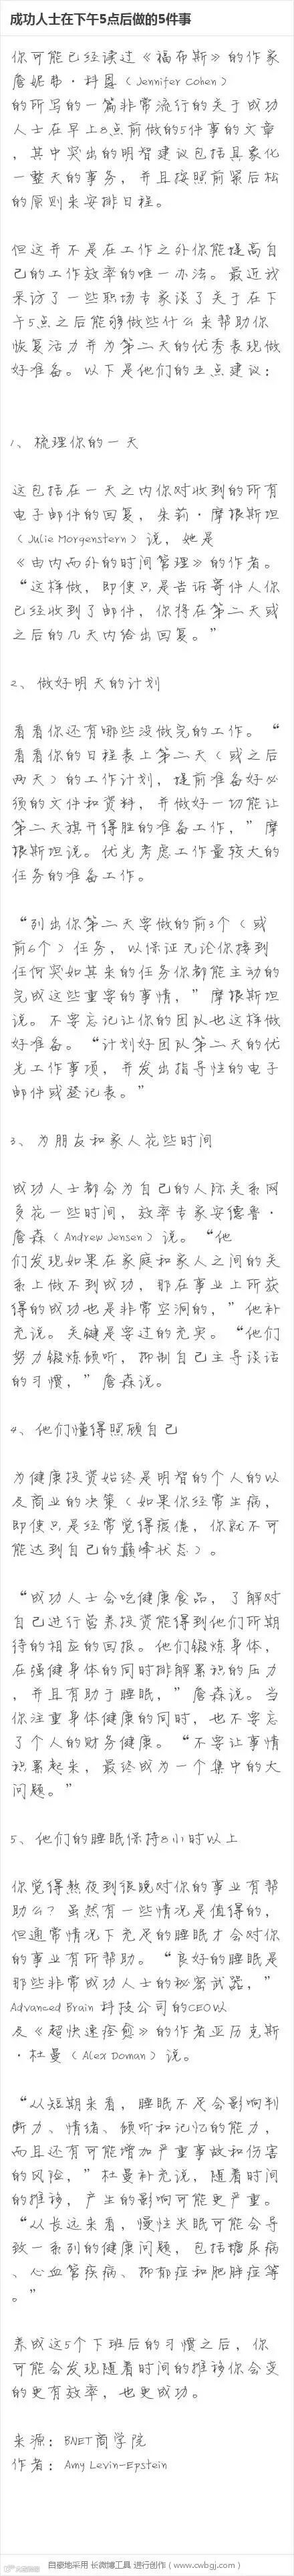 成功人士在下午5点后做的5件事
你可能已经读过《福布斯》的作家
詹妮弗·科恩（Jennifer Cohen）
的所写的一篇非常流行的关于成功
人士在早上8点前做的5件事的文章
，其中突出的明智建议包括具象化
一整天的事务，并且按照前紧后松
的原则来安排日程。
但这并不是在工作之外你能提高自
己的工作效率的唯一办法。最近我
采访了一些职场专家谈了关于在下
午5点之后能够做些什么来帮助你
恢复活力并为第二天的优秀表现做
好准备。以下是他们的五点建议：
1、梳理你的一天
这包括在一天之内你对收到的所有
电子邮件的回复，朱莉·摩根斯坦
（Julie Morgenstern）说，她是
《由内而外的时间管理》的作者。
“这样做，即使只是告诉寄件人你
已经收到了邮件，你将在第二天或
之后的几天内给出回复。”
2、做好明天的计划
看看你还有哪些没做完的工作。“
看看你的日程表上第二天（或之后
两天）的工作计划，提前准备好必
须的文件和资料，并做好一切能让
第二天旗开得胜的准备工作，”摩
根斯坦说。优先考虑工作量较大的
任务的准备工作。
“列出你第二天要做的前3个（或
前6个）任务，以保证无论你接到
任何突如其来的任务你都能主动的
完成这些重要的事情，”摩根斯坦
说。不要忘记让你的团队也这样做
好准备。“计划好团队第二天的优
先工作事项，并发出指导性的电子
邮件或登记表。”
3、为朋友和家人花些时间
成功人士都会为自己的人际关系网
多花一些时间，效率专家安德鲁·
詹森（Andrew Jensen）说。“他
们发现如果在家庭和家人之间的关
系上做不到成功，那在事业上所获
得的成功也是非常空洞的，”他补
充说。关键是要过的充实。“他们
努力锻炼倾听，抑制自己主导谈话
的习惯，”詹森说。
4、他们懂得照顾自己
为健康投资始终是明智的个人的以
及商业的决策（如果你经常生病，
即使只是经常觉得疲倦，你就不可
能达到自己的巅峰状态）。
“成功人士会吃健康食品，了解对
自己进行营养投资能得到他们所期
待的相应的回报。他们锻炼身体，
在强健身体的同时排解累积的压力
，并且有助于睡眠，”詹森说。当
你注重身体健康的同时，也不要忘
了个人的财务健康。“不要让事情
积累起来，最终成为一个集中的大
问题。”
5、他们的睡眠保持8小时以上
你觉得熬夜到很晚对你的事业有帮
助么？虽然有一些情况是值得的，
但通常情况下充足的睡眠才会对你
的事业有所帮助。“良好的睡眠是
那些非常成功人士的秘密武器，”
Advanced Brain 科技公司的CEO以
及《超快速痊愈》的作者亚历克斯
·杜曼（Alex Doman）说。
“从短期来看，睡眠不足会影响判
断力、情绪、倾听和记忆的能力，
而且还有可能增加严重事故和伤害
的风险，”杜曼补充说，随着时间
的推移，产生的影响可能更严重。
“从长远来看，慢性失眠可能会导
致一系列的健康问题，包括糖尿病
、心血管疾病、抑郁症和肥胖症等
。”
养成这5个下班后的习惯之后，你
可能会发现随着时间的推移你会变
的更有效率，也更成功。
来源：BNET商学院
作者：Amy Levin-Epstein
自豪地采用 长微博工具 进行创作（www.cwbgj.com）